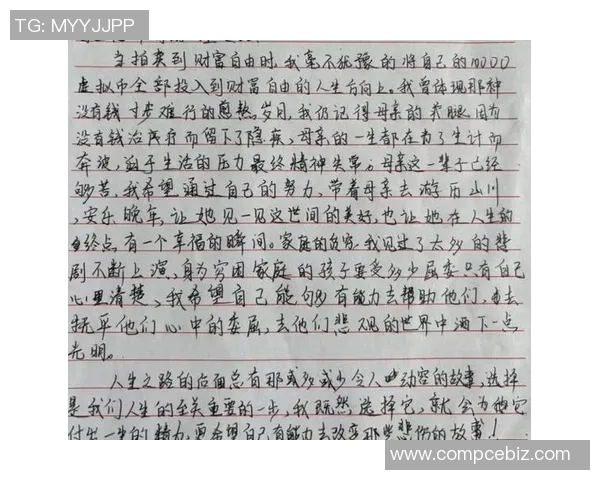 TG: MYYJJPP
当拍卖到财富自由时,我毫不犹豫的将自己的10000
虚拟币全部投入到财富自由的人生方向上。我曾体现那种
没有钱寸步难行的煎熬岁月,我仍记得母亲的 腿,因为
没有钱治疗而留下了隐疾、母亲的一生都在为了生计而
奔波,迫于生活的压力最终精神失常。母亲这一辈子已经
够苦,我希望通过自己的努力,带着母亲去游历山川
,安乐晚年,让她见一见这世间的美好,也让她在人生的
终点有一个幸福的瞬间。家庭的贫穷,我见过了太多的悲
剧不断上演,身为穷困家庭的孩子要受多少屈委只有自己
心里清楚、我希望自己能够有能力去帮助他们,去
抚平他们心中的委屈,去他们悲观的世界中洒下一点
光明。
人生之路的后面总有那或多或少令人动容的故事,选择
是我们人生的至关重要的一步,我既然选择它,就会为他
付出一生的精力,更希望自己有能力去改变那些悲伤的故事!
www.compcebiz.com